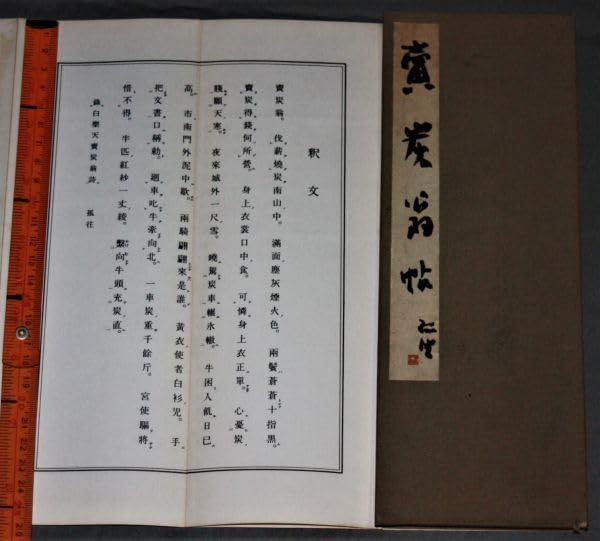 賣炭翁帖
釈文
賣炭翁。 伐薪燒炭南山中。 滿面塵灰煙火色。 兩鬢蒼蒼十指黑。
賣炭得錢何所營。 身上衣裳口中食。 可憐身上衣正單。 心憂炭
賤願天寒。 夜來城外一尺雪。 曉駕炭車輾氷轍。 牛困人飢日已
高。 市南門外泥中歇。 兩騎翩翩來是誰。 黃衣使者白衫兒。 手
把文書口稱勅。 廻車叱牛牽向北。 一車炭重千餘斤。 宮使驅將
惜不得。 半匹紅紗一丈綾。 繫向牛頭充炭直。
錄白樂天賣炭翁詩 孤往